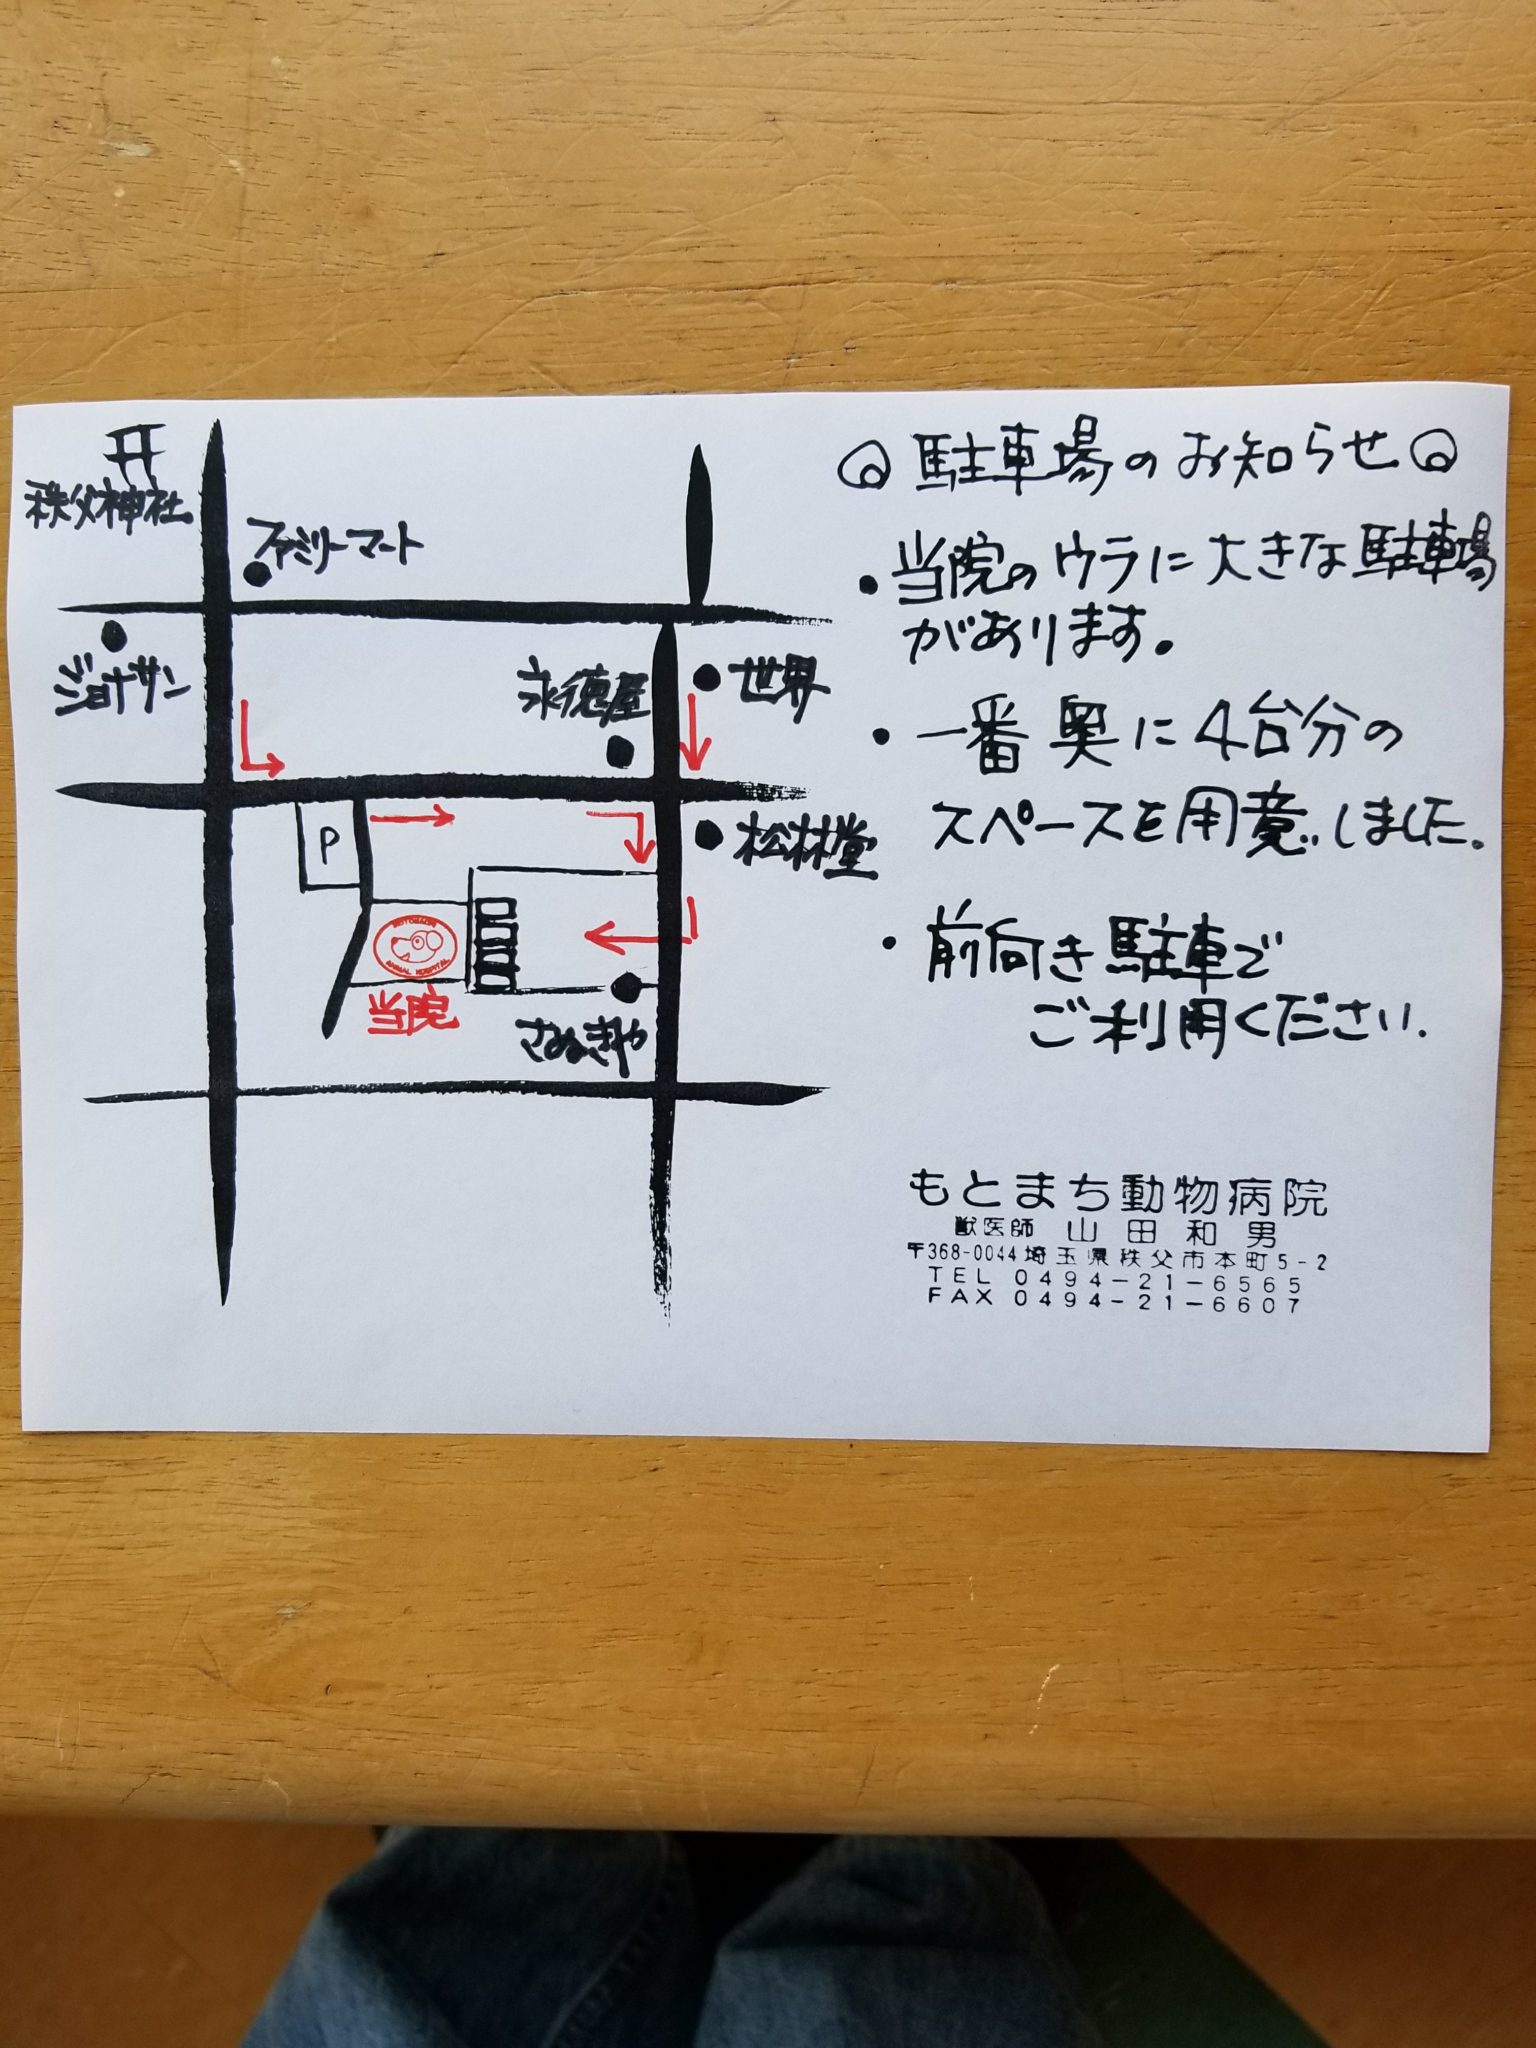 秩父神社
ファミリーマート
ジョナサン
永徳屋
世界
P
松林堂
MOTOMACHI
ANIMAL HOSPITAL
当院
さぬきや
駐車場のお知らせ
・当院のウラに大きな駐車場
があります。
・一番奥に4台分の
スペースを用意しました。
・前向き駐車で
ご利用ください.
もとまち動物病院
獣医師 山田和男
〒368-0044埼玉県秩父市本町5-2
TEL 0494-21-6565
FAX 0494-21-6607